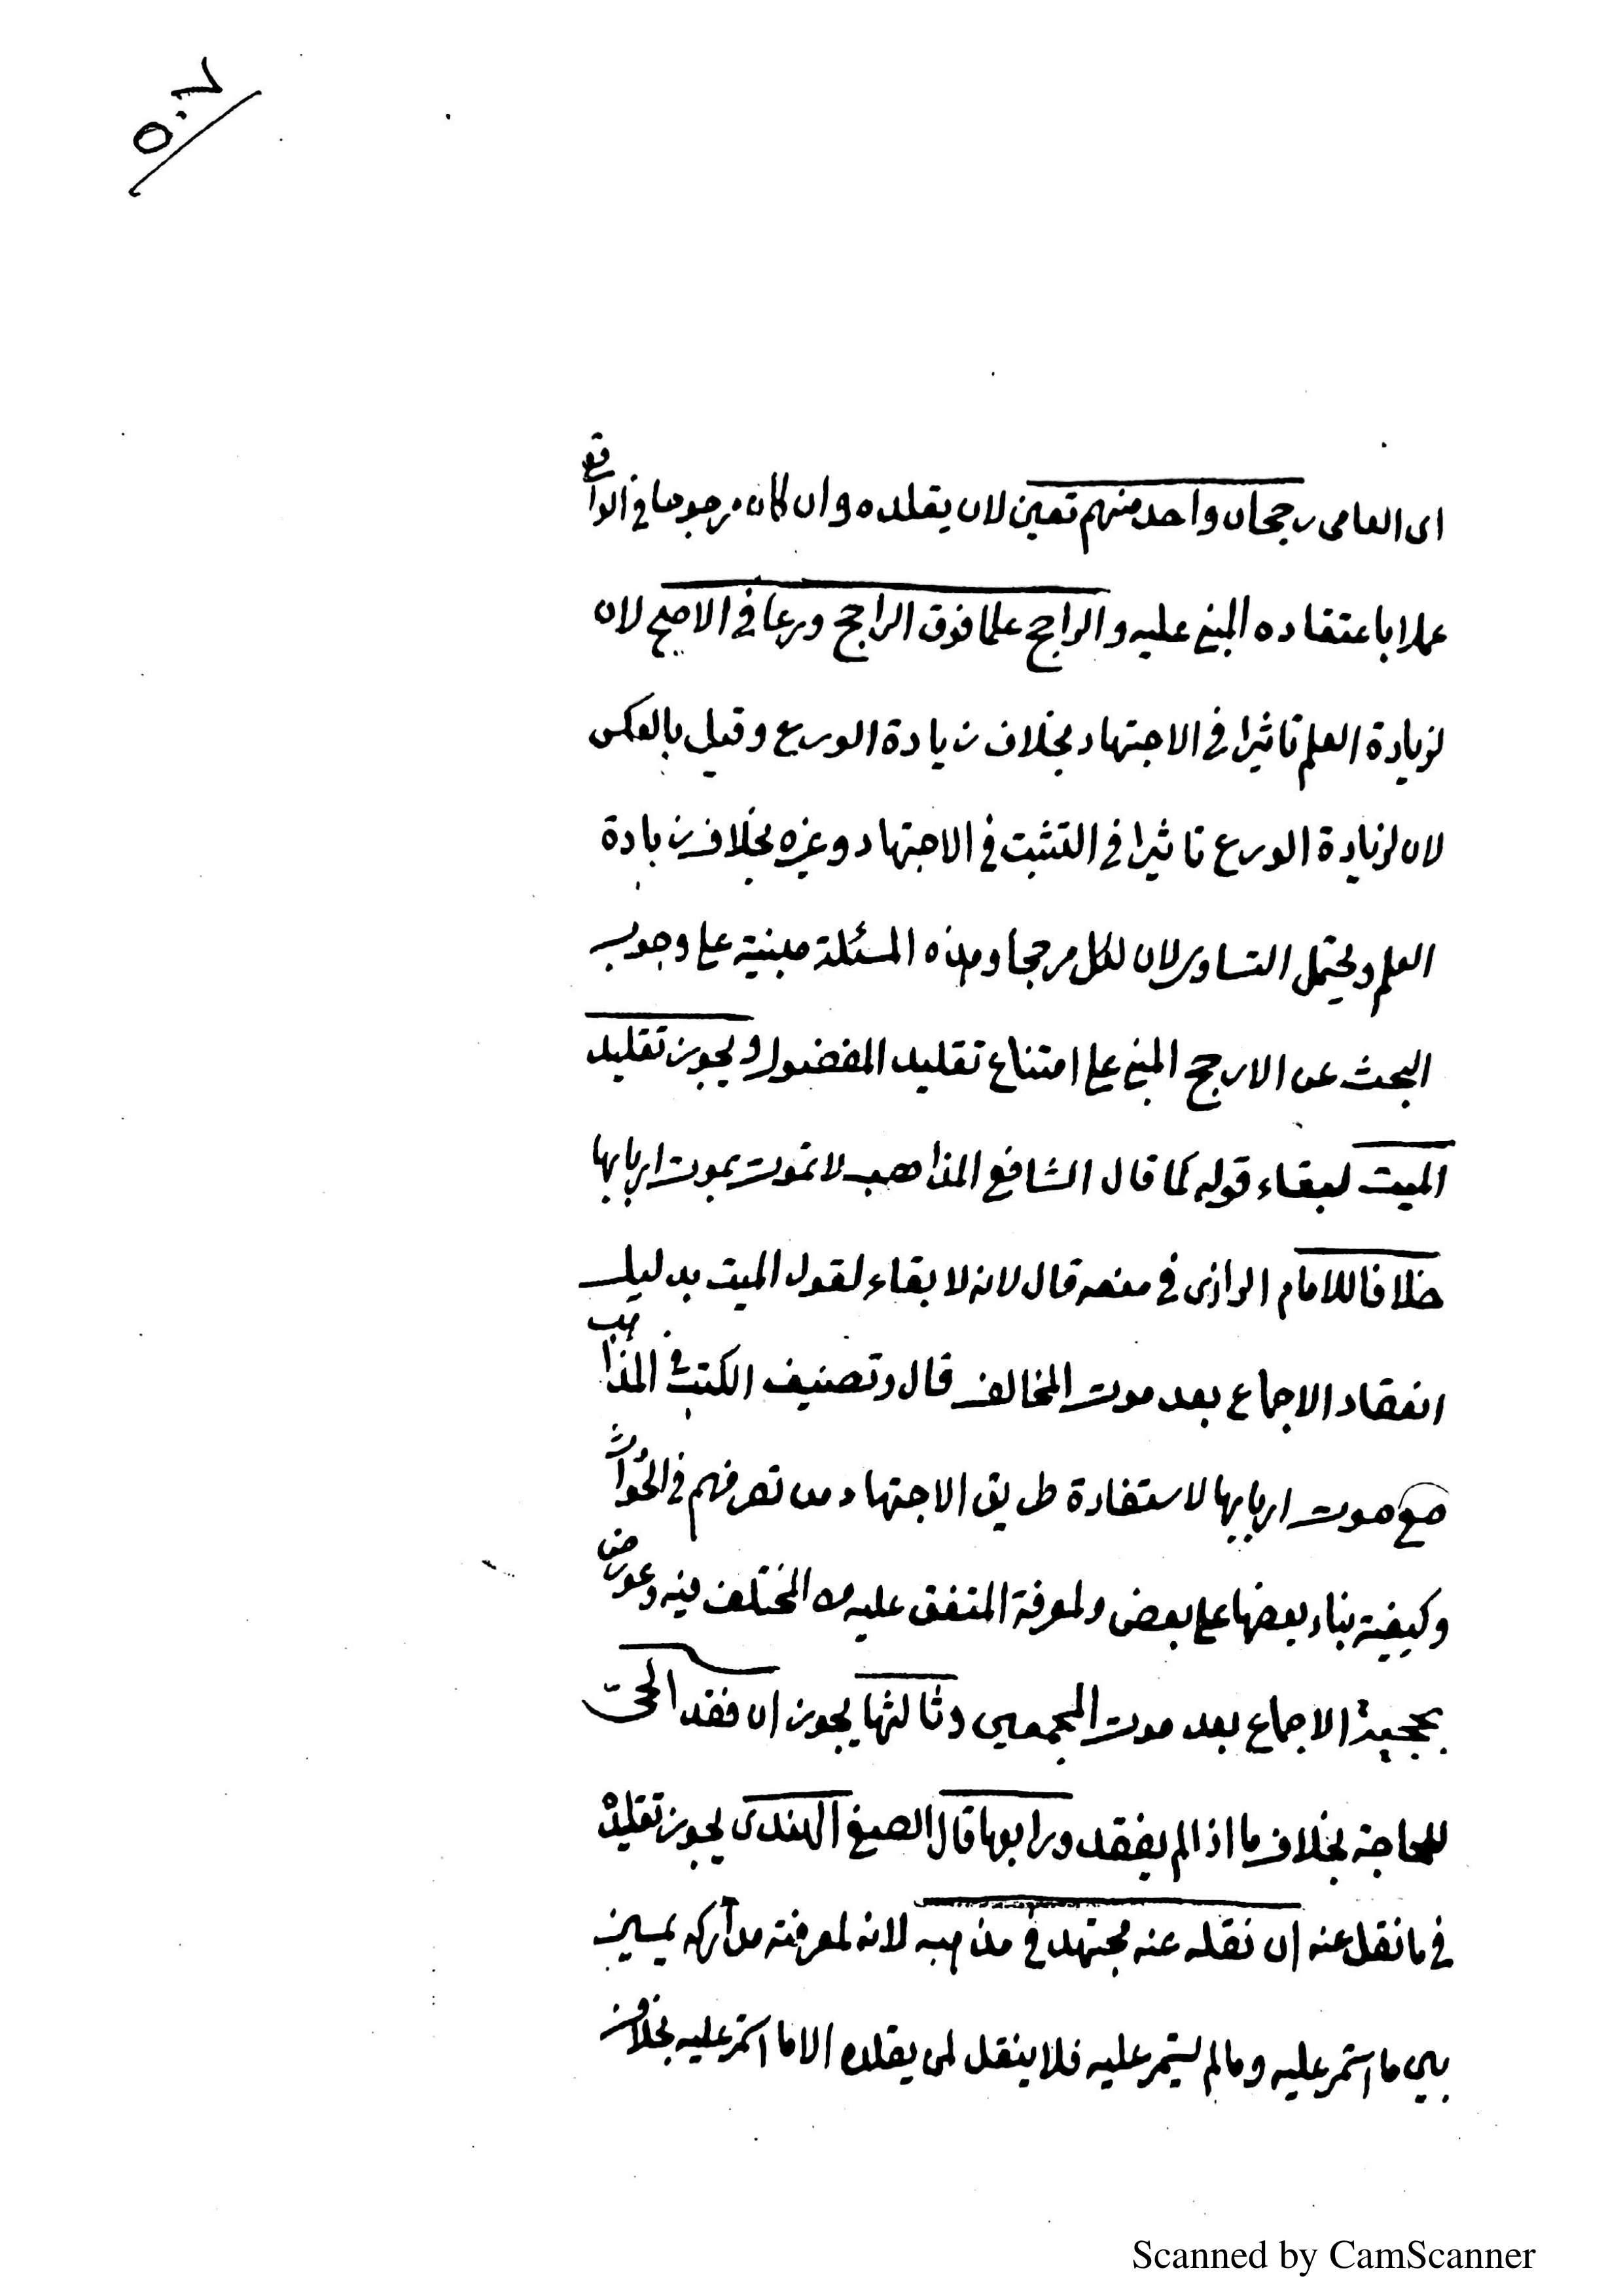 ٥٠٧
اى العامى رجحان واحد منهم تعين لان يقلده وان كان مرجوحا فى الواقع
عملا باعتقاده المبنى عليه والراجح علما فوق الراجح ورعا فى الاصح لان
لزيادة العلم تاثيرا فى الاجتهاد بخلاف زيادة الورع وقيل بالعكس
لان لزيادة الورع تاثيرا فى التثبت فى الاجتهاد وغيره بخلاف زيادة
العلم ويحتمل التساوى لان لكل مرجحا وهذه المسئلة مبنية على وجوب
البحث عن الارجح المبنى على امتناع تقليد المفضول ويجوز تقليد
الميت لبقاء قوله كما قال الشافعى المذاهب لا تموت بموت اربابها
خلافا للامام الرازى فى منعه قال لانه لا بقاء لقول الميت بدليل
انعقاد الاجماع بعد موت المخالف قال وتصنيف الكتب فى المذاهب
مع موت اربابها لاستفادة طريق الاجتهاد من تصرفهم فى الحوادث
وكيفية بناء بعضها على بعض ولمعرفة المتفق عليه من المختلف فيه وعورض
بحجية الاجماع بعد موت المجمعين وثالثها يجوز ان فقد الحى
للحاجة بخلاف ما اذا لم يفقد ورابعها قال الصفى الهندى يجوز تقليده
فى ما نقل عنه ان نقله عنه مجتهد فى مذهبه لانه لمعرفته مداركه يميز
بين ما استمر عليه وما لم يستمر عليه فلا ينقل لمن يقلده الا ما استمر عليه بخلاف
Scanned by CamScanner